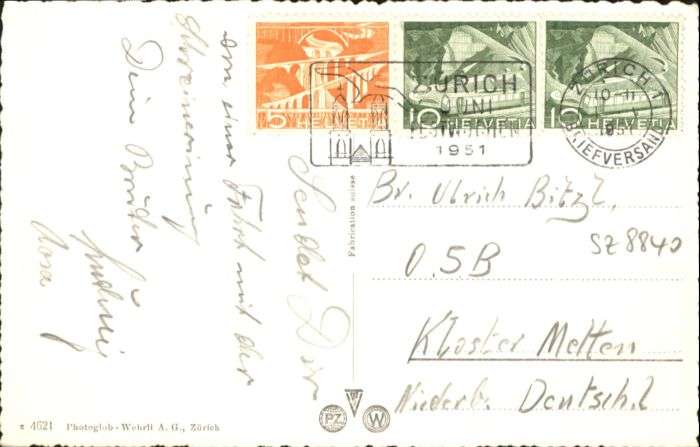 5 HELVETIA
10 HELVETIA
10 HELVETIA
ZÜRICH
JUNI
FESTWOCHEN
1951
ZÜRICH 1
1951
BRIEFVERSAND
Sendet Dir
von einer Fahrt mit der
Dein Bruder
Ludwig
Fabrication suisse
Br. Ulrich Bitzl,
SZ 8840
O.S.B
Kloster Metten
Niederb. Deutschl
PZ
W
z 4621 Photoglob-Wehrli A. G., Zürich